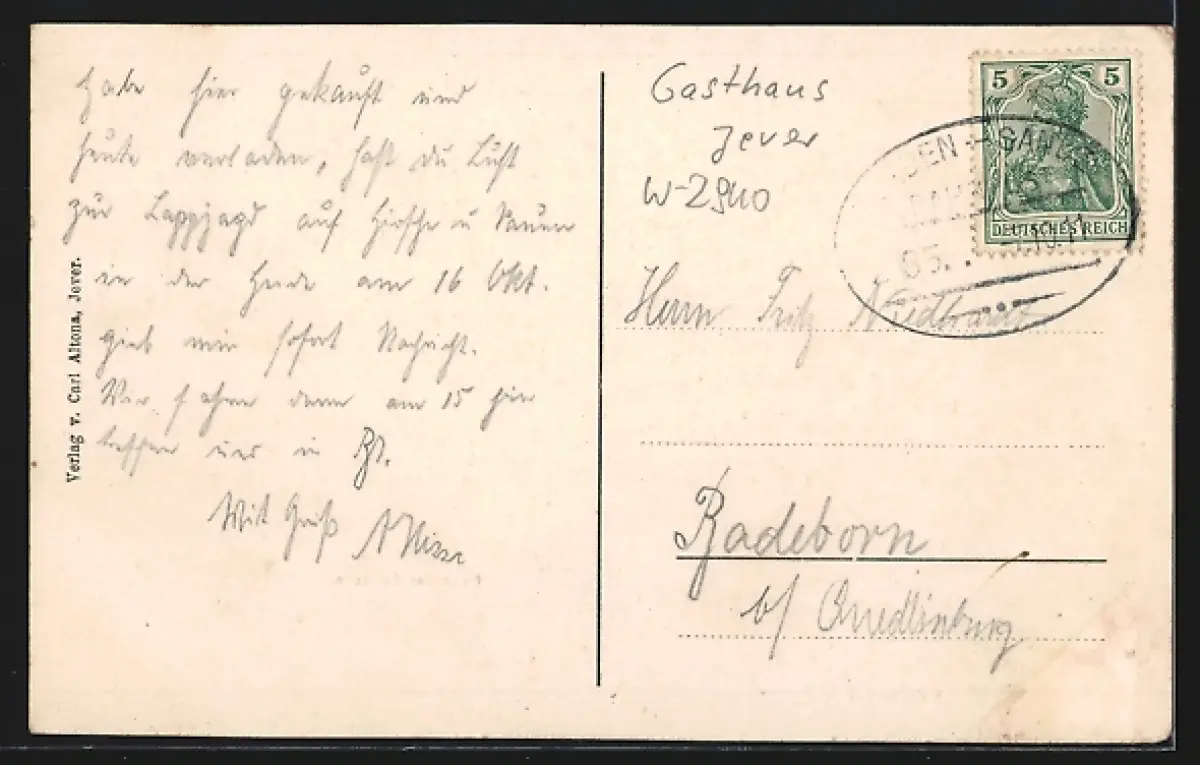 Habe hier gekauft und
heute verladen, hast du Lust
zur Lappjagd auf Hirsche u Sauen
in der Heide am 16 Okt.
gieb mir sofort Nachricht.
Wir fahren dann am 15 hin
treffen uns in
Mit Gruß A
Verlag v. Carl Altona, Jever.
Gasthaus
Jever
W-2940
5 5
DEUTSCHES REICH
10.11
Herrn Fritz
Radeborn
b/ Quedlinburg